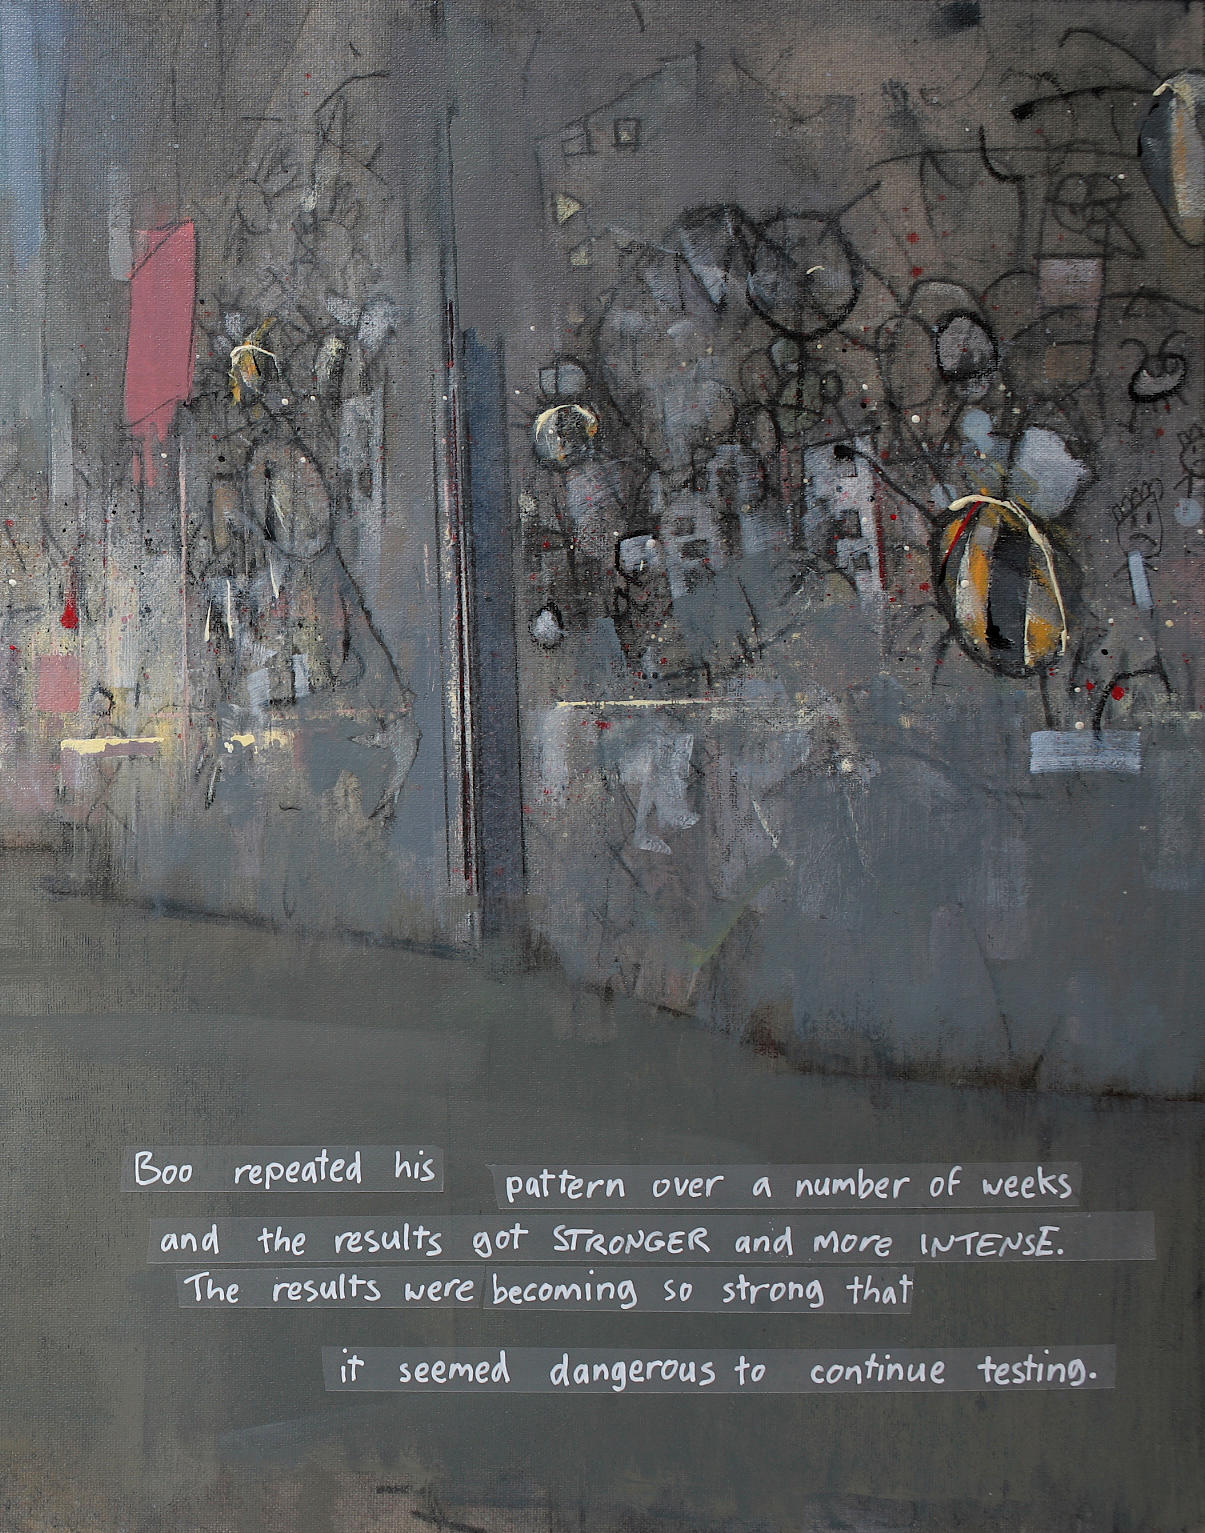 Boo repeated his pattern over a number of weeks
and the results got STRONGER and more INTENSE.
The results were becoming so strong that
it seemed dangerous to continue testing.